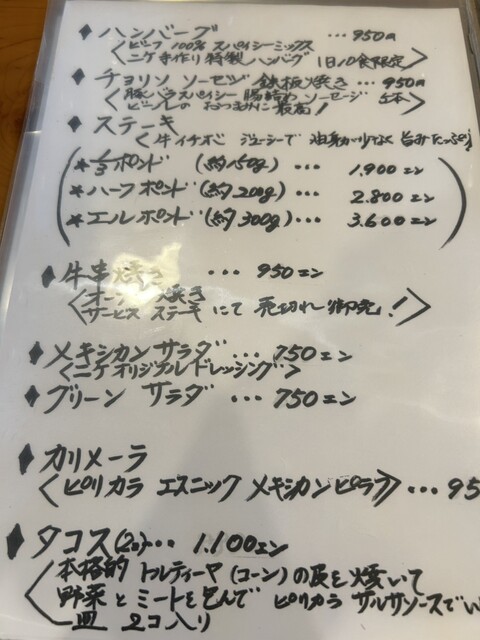 ◆ハンバーグ ... 950円
<ビーフ 100% スパイシーミックス
ニケ手作り特製ハンバグ 1日10食限定>
◆チョリソ ソーセジ 鉄板焼き... 950円
<豚バラスパイシー腸詰め ソーセージ 5本
ビールの おつまみに最高!>
◆ステーキ
<牛イチボ ジューシーで 油身が少なく 旨みたっぷり
*1/3ポンド (約150g) ... 1.900エン
*ハーフポンド (約200g) ... 2.800エン
*エルポンド (約300g) ... 3.600エン
◆牛串焼き ... 950エン
焼き
サービス ステーキ にて 売切れ御免!>
◆メキシカンサラダ... 750エン
<ニケオリジナルドレッシング>
◆グリーン サラダ ... 750エン
◆カリメーラ
<ピリカラ エスニック メキシカンピラフ> ...95
◆タコス(2コ)... 1.100エン
<本格的 トルティーヤ(コーン)の皮を焼いて
野菜とミートを包んで ピリカラ サルサソースで
一皿 2コ入り